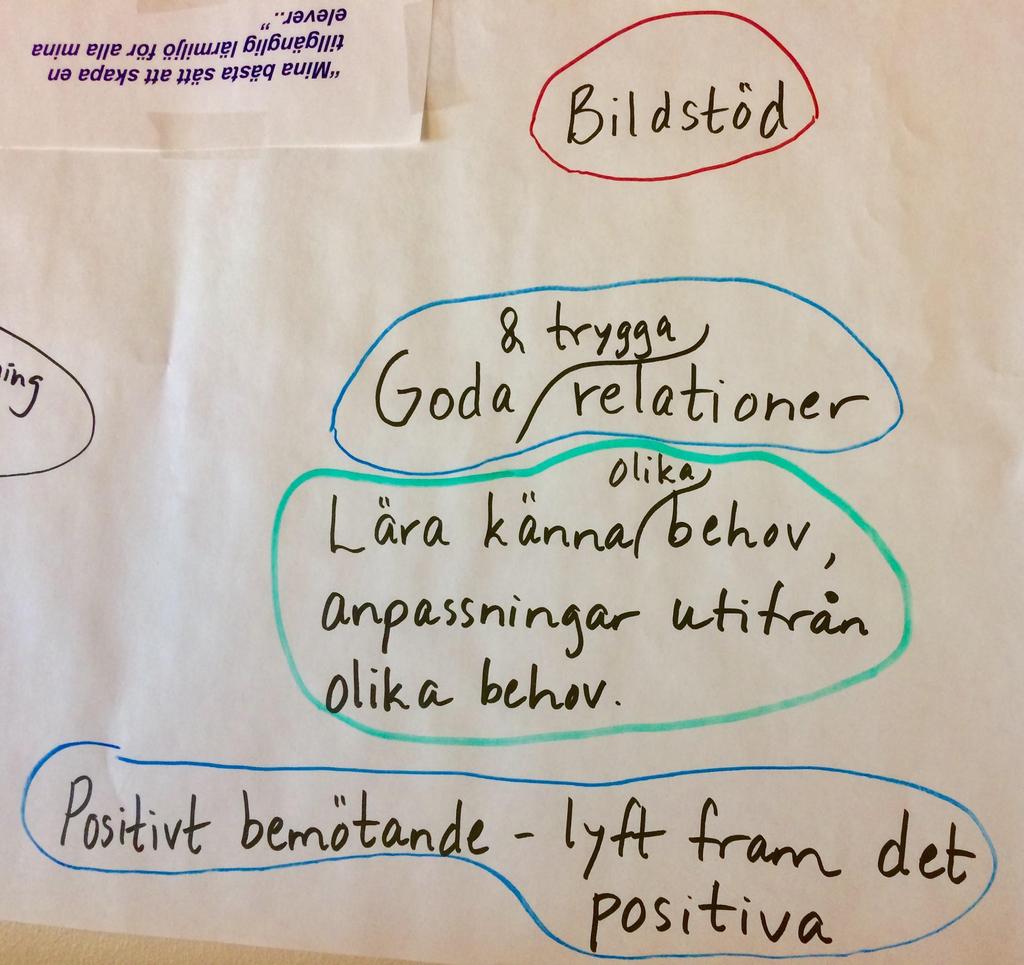 "Mina bästa sätt att skapa en
tillgänglig lärmiljö för alla mina
elever.."
Bildstöd
& trygga
Goda relationer
olika
Lära känna behov,
anpassningar utifrån
olika behov.
Positivt bemötande - lyft fram det
positiva